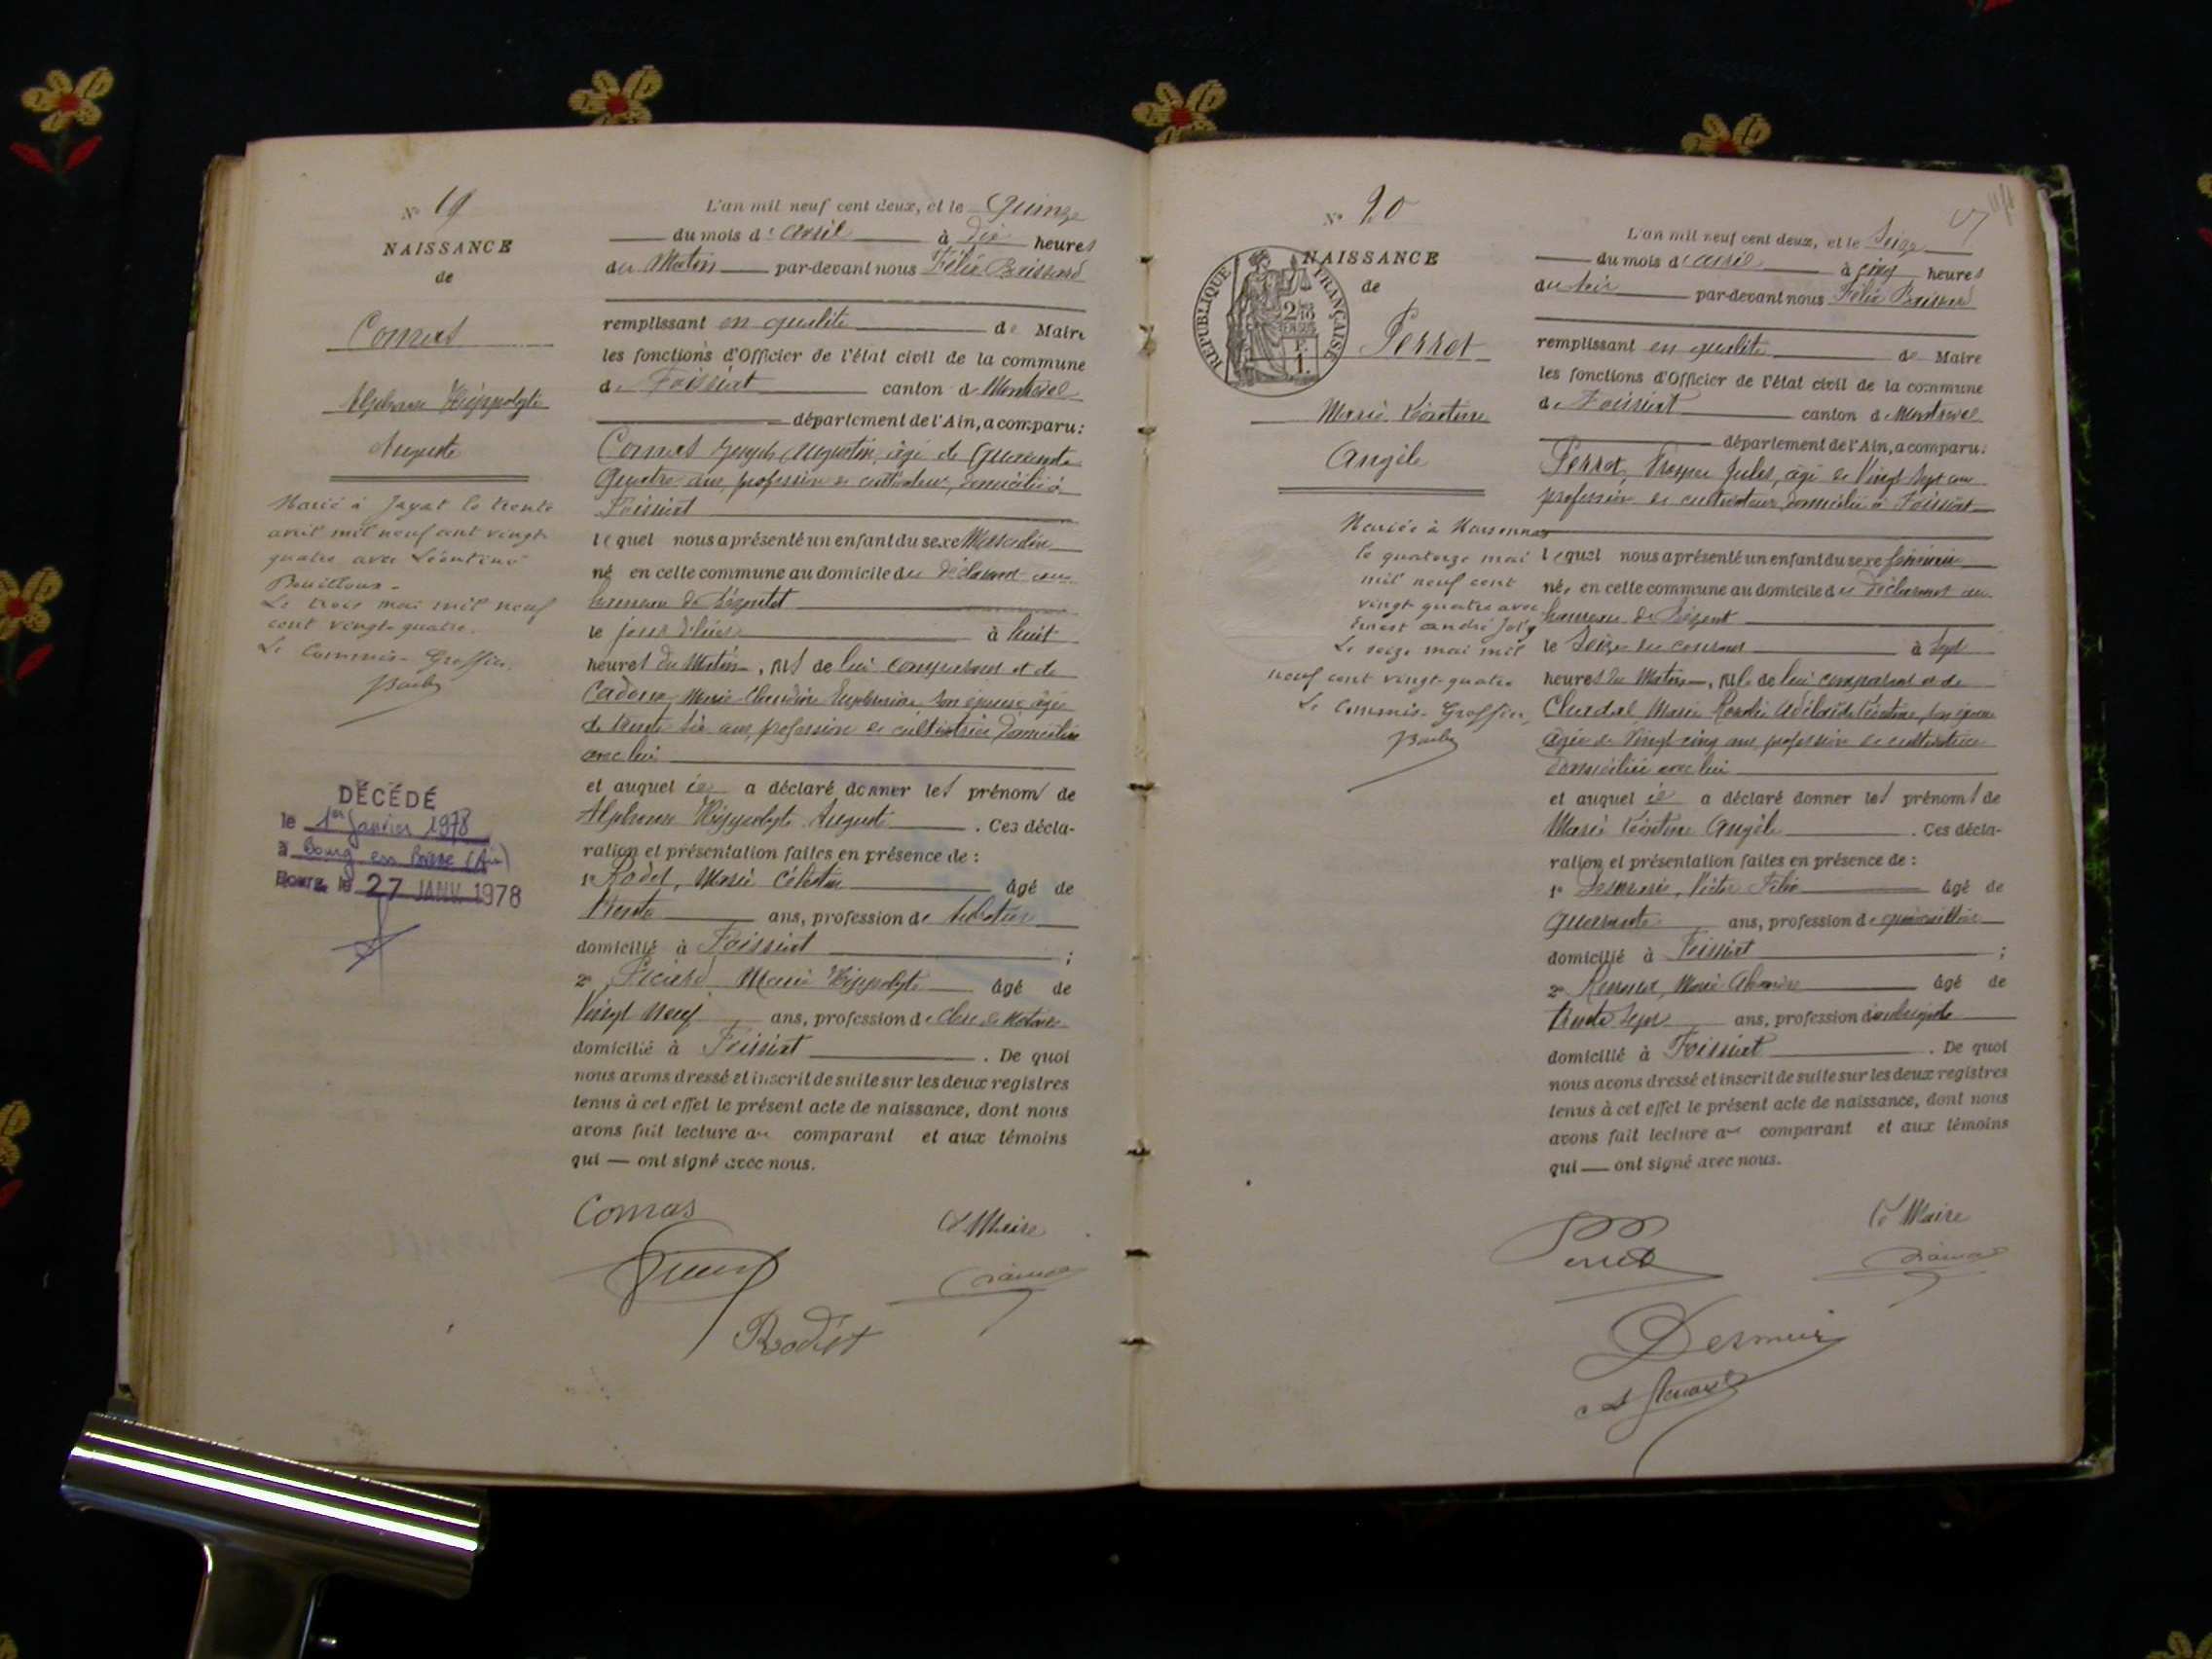 N° 19
NAISSANCE
de
Comas
Alphonse Hippolyte
Auguste
Marié à Jayat le trente
avril mil neuf cent vingt
quatre avec Léontine
Bouilloux.
Le trois mai mil neuf
cent vingt-quatre.
Le Commis-Greffier,
DÉCÉDÉ
le 1er janvier 1978
à Bourg en Bresse (Ain)
Bourg, le 27 JANV. 1978
L'an mil neuf cent deux, et le quinze
du mois d'avril à dix heures
du matin par-devant nous Félix
remplissant en qualité de Maire
les fonctions d'Officier de l'état civil de la commune
de Foissiat canton de Montrevel
département de l'Ain, a comparu:
Comas Joseph Augustin, âgé de quarante
quatre ans, profession de cultivateur, domicilié à
Foissiat
lequel nous a présenté un enfant du sexe Masculin
né en cette commune au domicile du déclarant au
hameau de
le jour d'hier à huit
heures du Matin, fils de lui comparant et de
Marie Claudine son épouse âgée
de trente six ans, profession de cultivatrice, domiciliée
avec lui
et auquel il a déclaré donner les prénoms de
Alphonse Hippolyte Auguste. Ces décla-
ration et présentation faites en présence de :
1° Rodet, Marie Célestin âgé de
trente ans, profession de
domicilié à Foissiat ;
2° Picard Marie Hippolyte âgé de
Vingt neuf ans, profession de clerc de Notaire
domicilié à Foissiat. De quoi
nous avons dressé et inscrit de suite sur les deux registres
tenus à cet effet le présent acte de naissance, dont nous
avons fait lecture au comparant et aux témoins
qui — ont signé avec nous.
Comas
Le Maire
Rodet
N° 20
NAISSANCE
de
RÉPUBLIQUE FRANÇAISE
Perret
Marie Léontine
Angèle
Mariée à Marsonnas
le quatorze mai
mil neuf cent
vingt-quatre avec
Ernest André Joly
Le seize mai mil
neuf cent vingt-quatre
Le Commis-Greffier,
L'an mil neuf cent deux, et le Seize
du mois d'avril à cinq heures
du soir par-devant nous Félix
remplissant en qualité de Maire
les fonctions d'Officier de l'état civil de la commune
de Foissiat canton de Montrevel
département de l'Ain, a comparu:
Perret, Prosper Jules, âgé de Vingt sept ans
profession de cultivateur domicilié à Foissiat
lequel nous a présenté un enfant du sexe féminin
née en cette commune au domicile du déclarant au
hameau de
le Seize du courant à sept
heures du Matin, fille de lui comparant et de
Marie Rosalie Adélaïde Léontine, son épouse
âgée de Vingt-cinq ans, profession de cultivatrice
domiciliée avec lui
et auquel il a déclaré donner les prénoms de
Marie Léontine Angèle. Ces décla-
ration et présentation faites en présence de :
1° Victor Félix âgé de
quarante ans, profession de quincaillier
domicilié à Foissiat ;
2° Marie âgé de
trente sept ans, profession d'aubergiste
domicilié à Foissiat. De quoi
nous avons dressé et inscrit de suite sur les deux registres
tenus à cet effet le présent acte de naissance, dont nous
avons fait lecture au comparant et aux témoins
qui — ont signé avec nous.
Perret
Le Maire